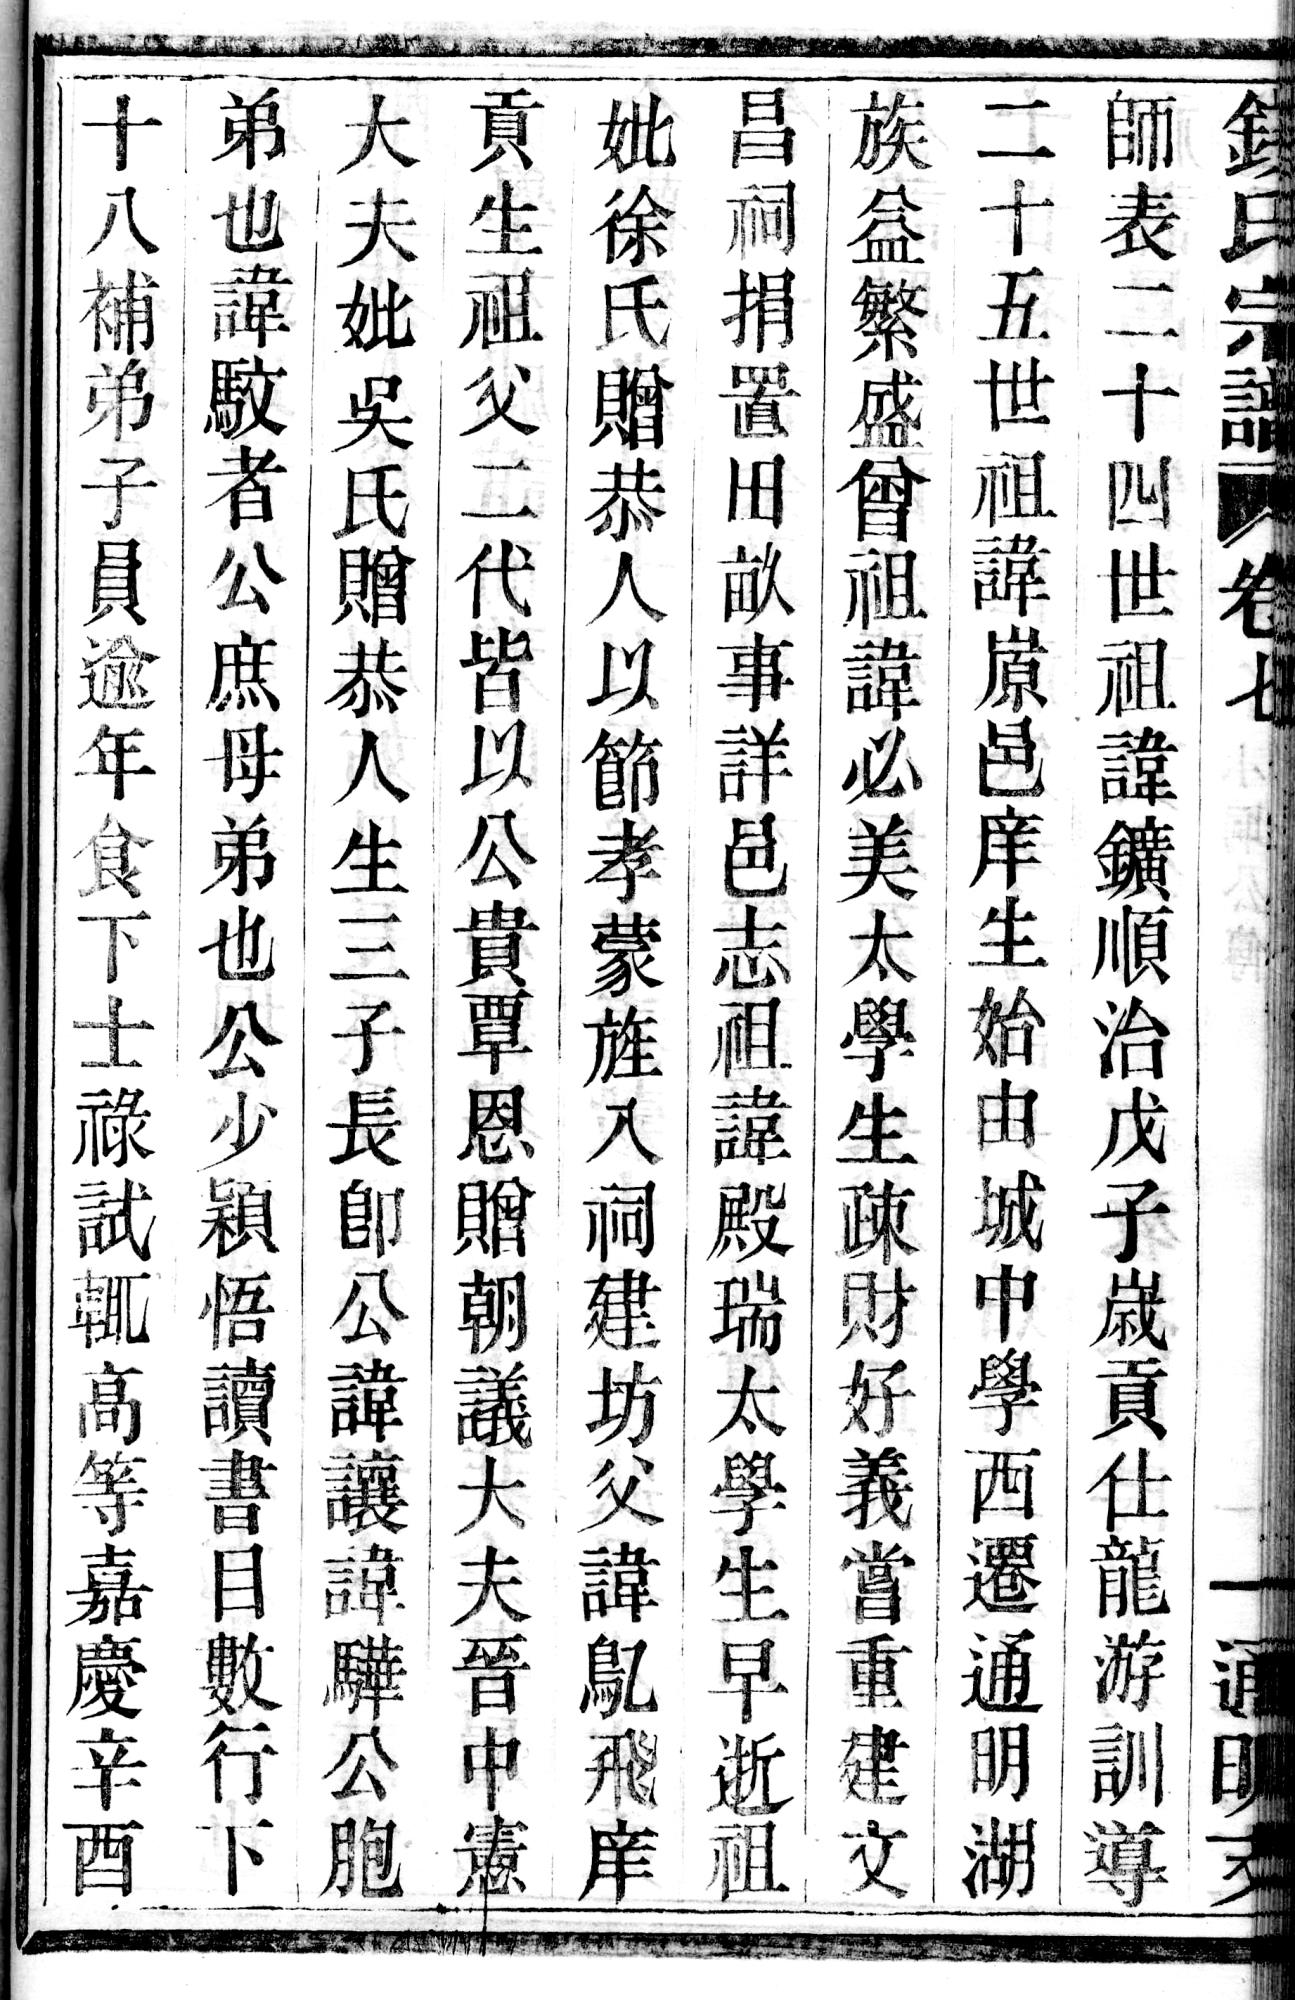 錢氏宗譜 卷七 一 通明支
師表二十四世祖諱鑛順治戊子歲貢仕龍游訓導
二十五世祖諱原邑庠生始由城中學西遷通明湖
族益繁盛曾祖諱必美太學生疎財好義嘗重建文
昌祠捐置田畝事詳邑志祖諱殿瑞太學生早逝祖
妣徐氏贈恭人以節孝蒙旌入祠建坊父諱飛庠
貢生祖父二代皆以公貴覃恩贈朝議大夫晉中憲
大夫妣吳氏贈恭人生三子長卽公諱讓諱驊公胞
弟也諱駮者公庶母弟也公少穎悟讀書目數行下
十八補弟子員逾年食下士祿試輒高等嘉慶辛酉